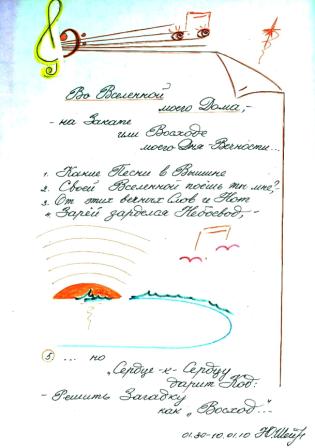 Во Вселенной
моего Дома,-
- на Закате
или Восходе
моего Дня-Вечности...
1. Какие Песни в Вышине
2. Своей Вселенной поёшь ты мне,?
3. От этих вечных Слов и Нот
4. Зарёй зарделся Небосвод,-
5. ... но
„Сердце-к-Сердцу
дарит Код:
- Решить Загадку
как „Восход"..-
01.30-10.01.10